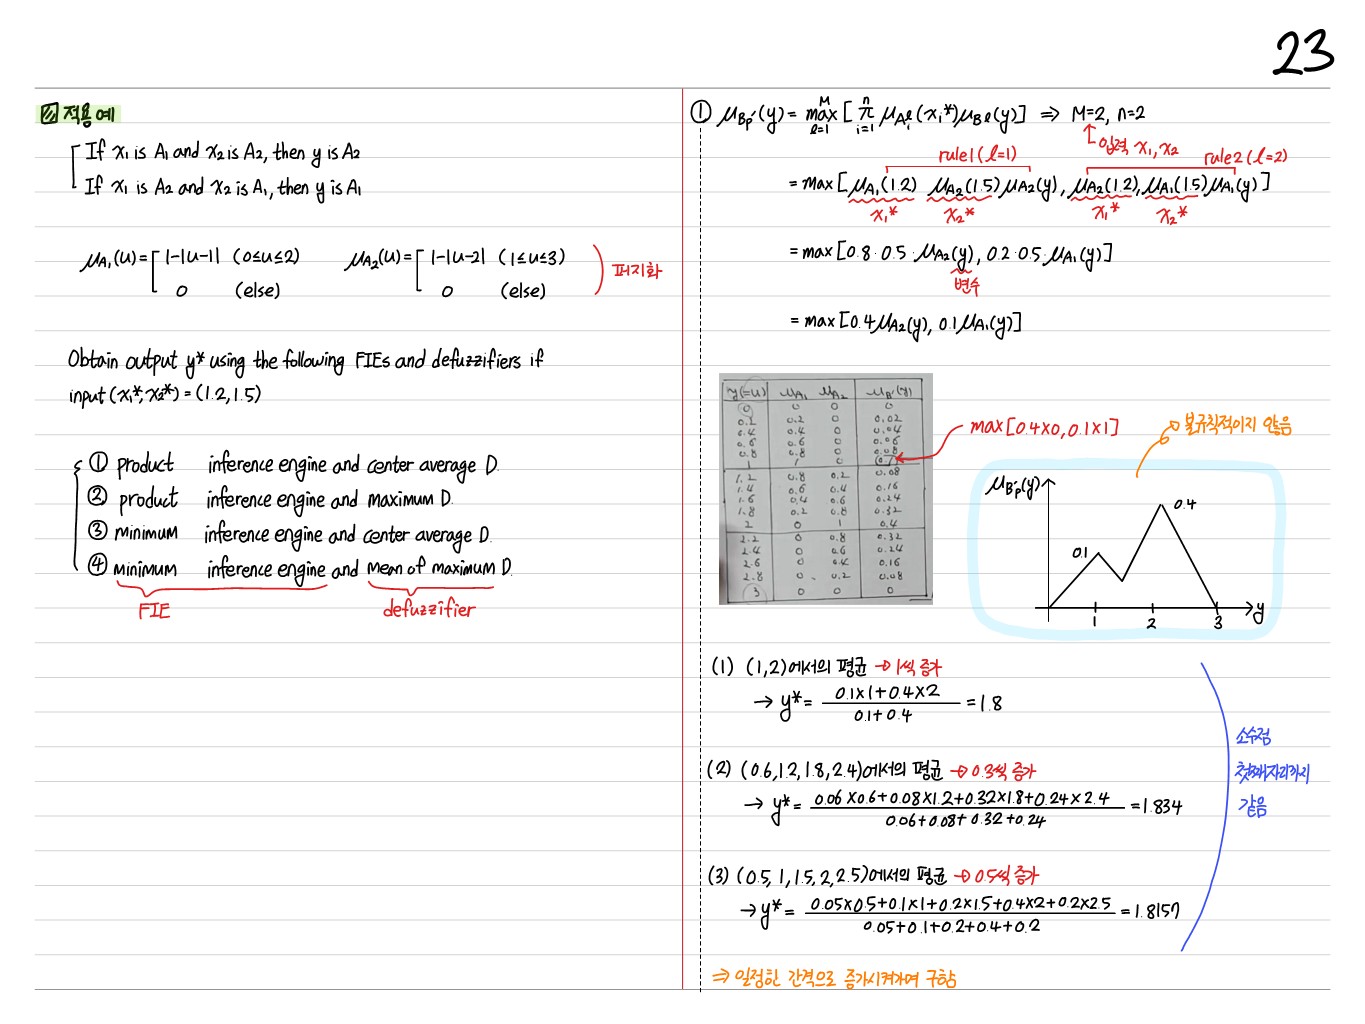 23
적용 예
If x₁ is A₁ and x₂ is A₂, then y is A₂
If x₁ is A₂ and x₂ is A₁, then y is A₁
μA₁(u) = [ 1-|u-1| (0≤u≤2)
0 (else)
μA₂(u) = [ 1-|u-2| (1≤u≤3)
0 (else)
퍼지화
Obtain output y* using the following FIEs and defuzzifiers if
input (x₁*, x₂*) = (1.2, 1.5)
① product inference engine and center average D.
② product inference engine and maximum D.
③ minimum inference engine and center average D.
④ minimum inference engine and mean of maximum D.
FIE defuzzifier
① μBp'(y) = max l=1 M [ π i=1 n μAᵢˡ(xᵢ*)μBˡ(y)] ⇒ M=2, n=2
입력 x₁, x₂
rule1 (l=1) rule2 (l=2)
= max[μA₁(1.2) μA₂(1.5)μA₂(y), μA₂(1.2), μA₁(1.5)μA₁(y)]
x₁* x₂* x₁* x₂*
= max[0.8·0.5·μA₂(y), 0.2·0.5·μA₁(y)]
변수
= max[0.4μA₂(y), 0.1μA₁(y)]
y(=u) μA₁ μA₂ μB'(y)
0 0 0 0
0.2 0.2 0 0.02
0.4 0.4 0 0.04
0.6 0.6 0 0.06
0.8 0.8 0 0.08
1 1 0 0.1
1.2 0.8 0.2 0.08
1.4 0.6 0.4 0.16
1.6 0.4 0.6 0.24
1.8 0.2 0.8 0.32
2 0 1 0.4
2.2 0 0.8 0.32
2.4 0 0.6 0.24
2.6 0 0.4 0.16
2.8 0 0.2 0.08
3 0 0 0
max[0.4×0, 0.1×1]
불규칙적이지 않음
μBp'(y)
0.4
0.1
1 2 3 y
(1) (1,2)에서의 평균 → 1씩 증가
→ y* = 0.1×1+0.4×2 / 0.1+0.4 = 1.8
(2) (0.6, 1.2, 1.8, 2.4)에서의 평균 → 0.3씩 증가
→ y* = 0.06×0.6+0.08×1.2+0.32×1.8+0.24×2.4 / 0.06+0.08+0.32+0.24 = 1.834
(3) (0.5, 1, 1.5, 2, 2.5)에서의 평균 → 0.5씩 증가
→ y* = 0.05×0.5+0.1×1+0.2×1.5+0.4×2+0.2×2.5 / 0.05+0.1+0.2+0.4+0.2 = 1.8157
소수점
첫째자리까지
같음
⇒ 일정한 간격으로 증가시켜가며 구함